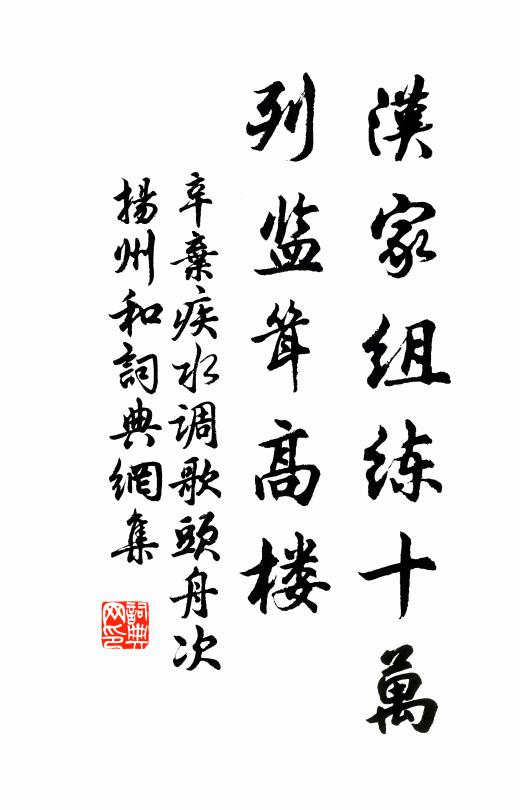 漢家组练十萬
列监耸高楼
辛棄疾水调歌頭舟次
揚州和詞典網集
詞典网印